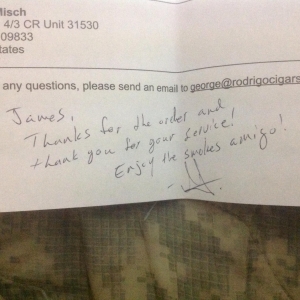 Misch
4/3 CR Unit 31530
09833
tates
any questions, please send an email to george@rodrigocigars
James,
Thanks for the order and
thank you for your service!
Enjoy the smokes amigo!